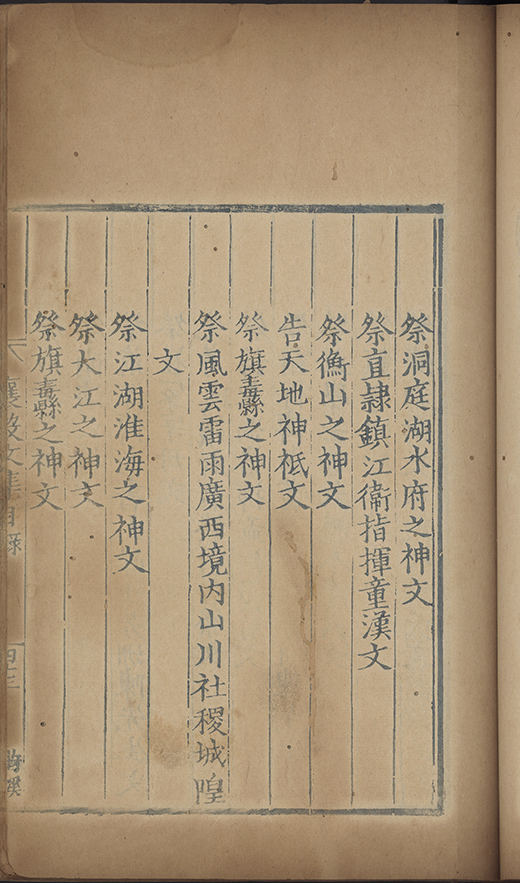 祭洞庭湖水府之神文
祭直隷鎮江衞指揮童漢文
祭衡山之神文
告天地神祇文
祭旗纛之神文
祭風雲雷雨廣西境内山川社稷城隍
文
祭江湖淮海之神文
祭大江之神文
祭旗纛之神文
襄毅文集目録